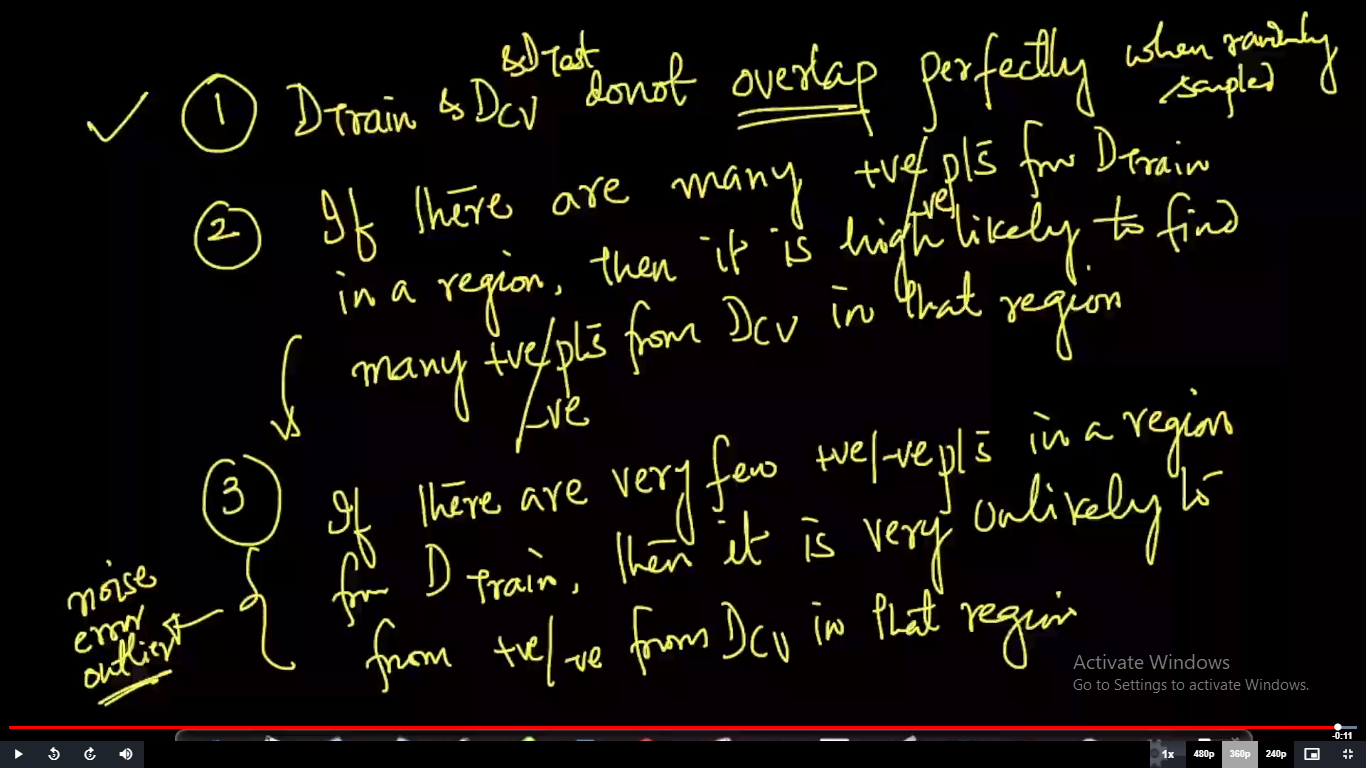 & DTest
① DTrain & DCV donot overlap perfectly when randomly sampled
② If there are many +ve/-ve pts from DTrain
in a region, then it is high likely to find
many +ve/-ve pts from DCV in that region
③ If there are very few +ve/-ve pts in a region
from DTrain, then it is very unlikely to
from +ve/-ve from DCV in that region
noise
error
outlier
Activate Windows
Go to Settings to activate Windows.
-0:11
1x 480p 360p 240p